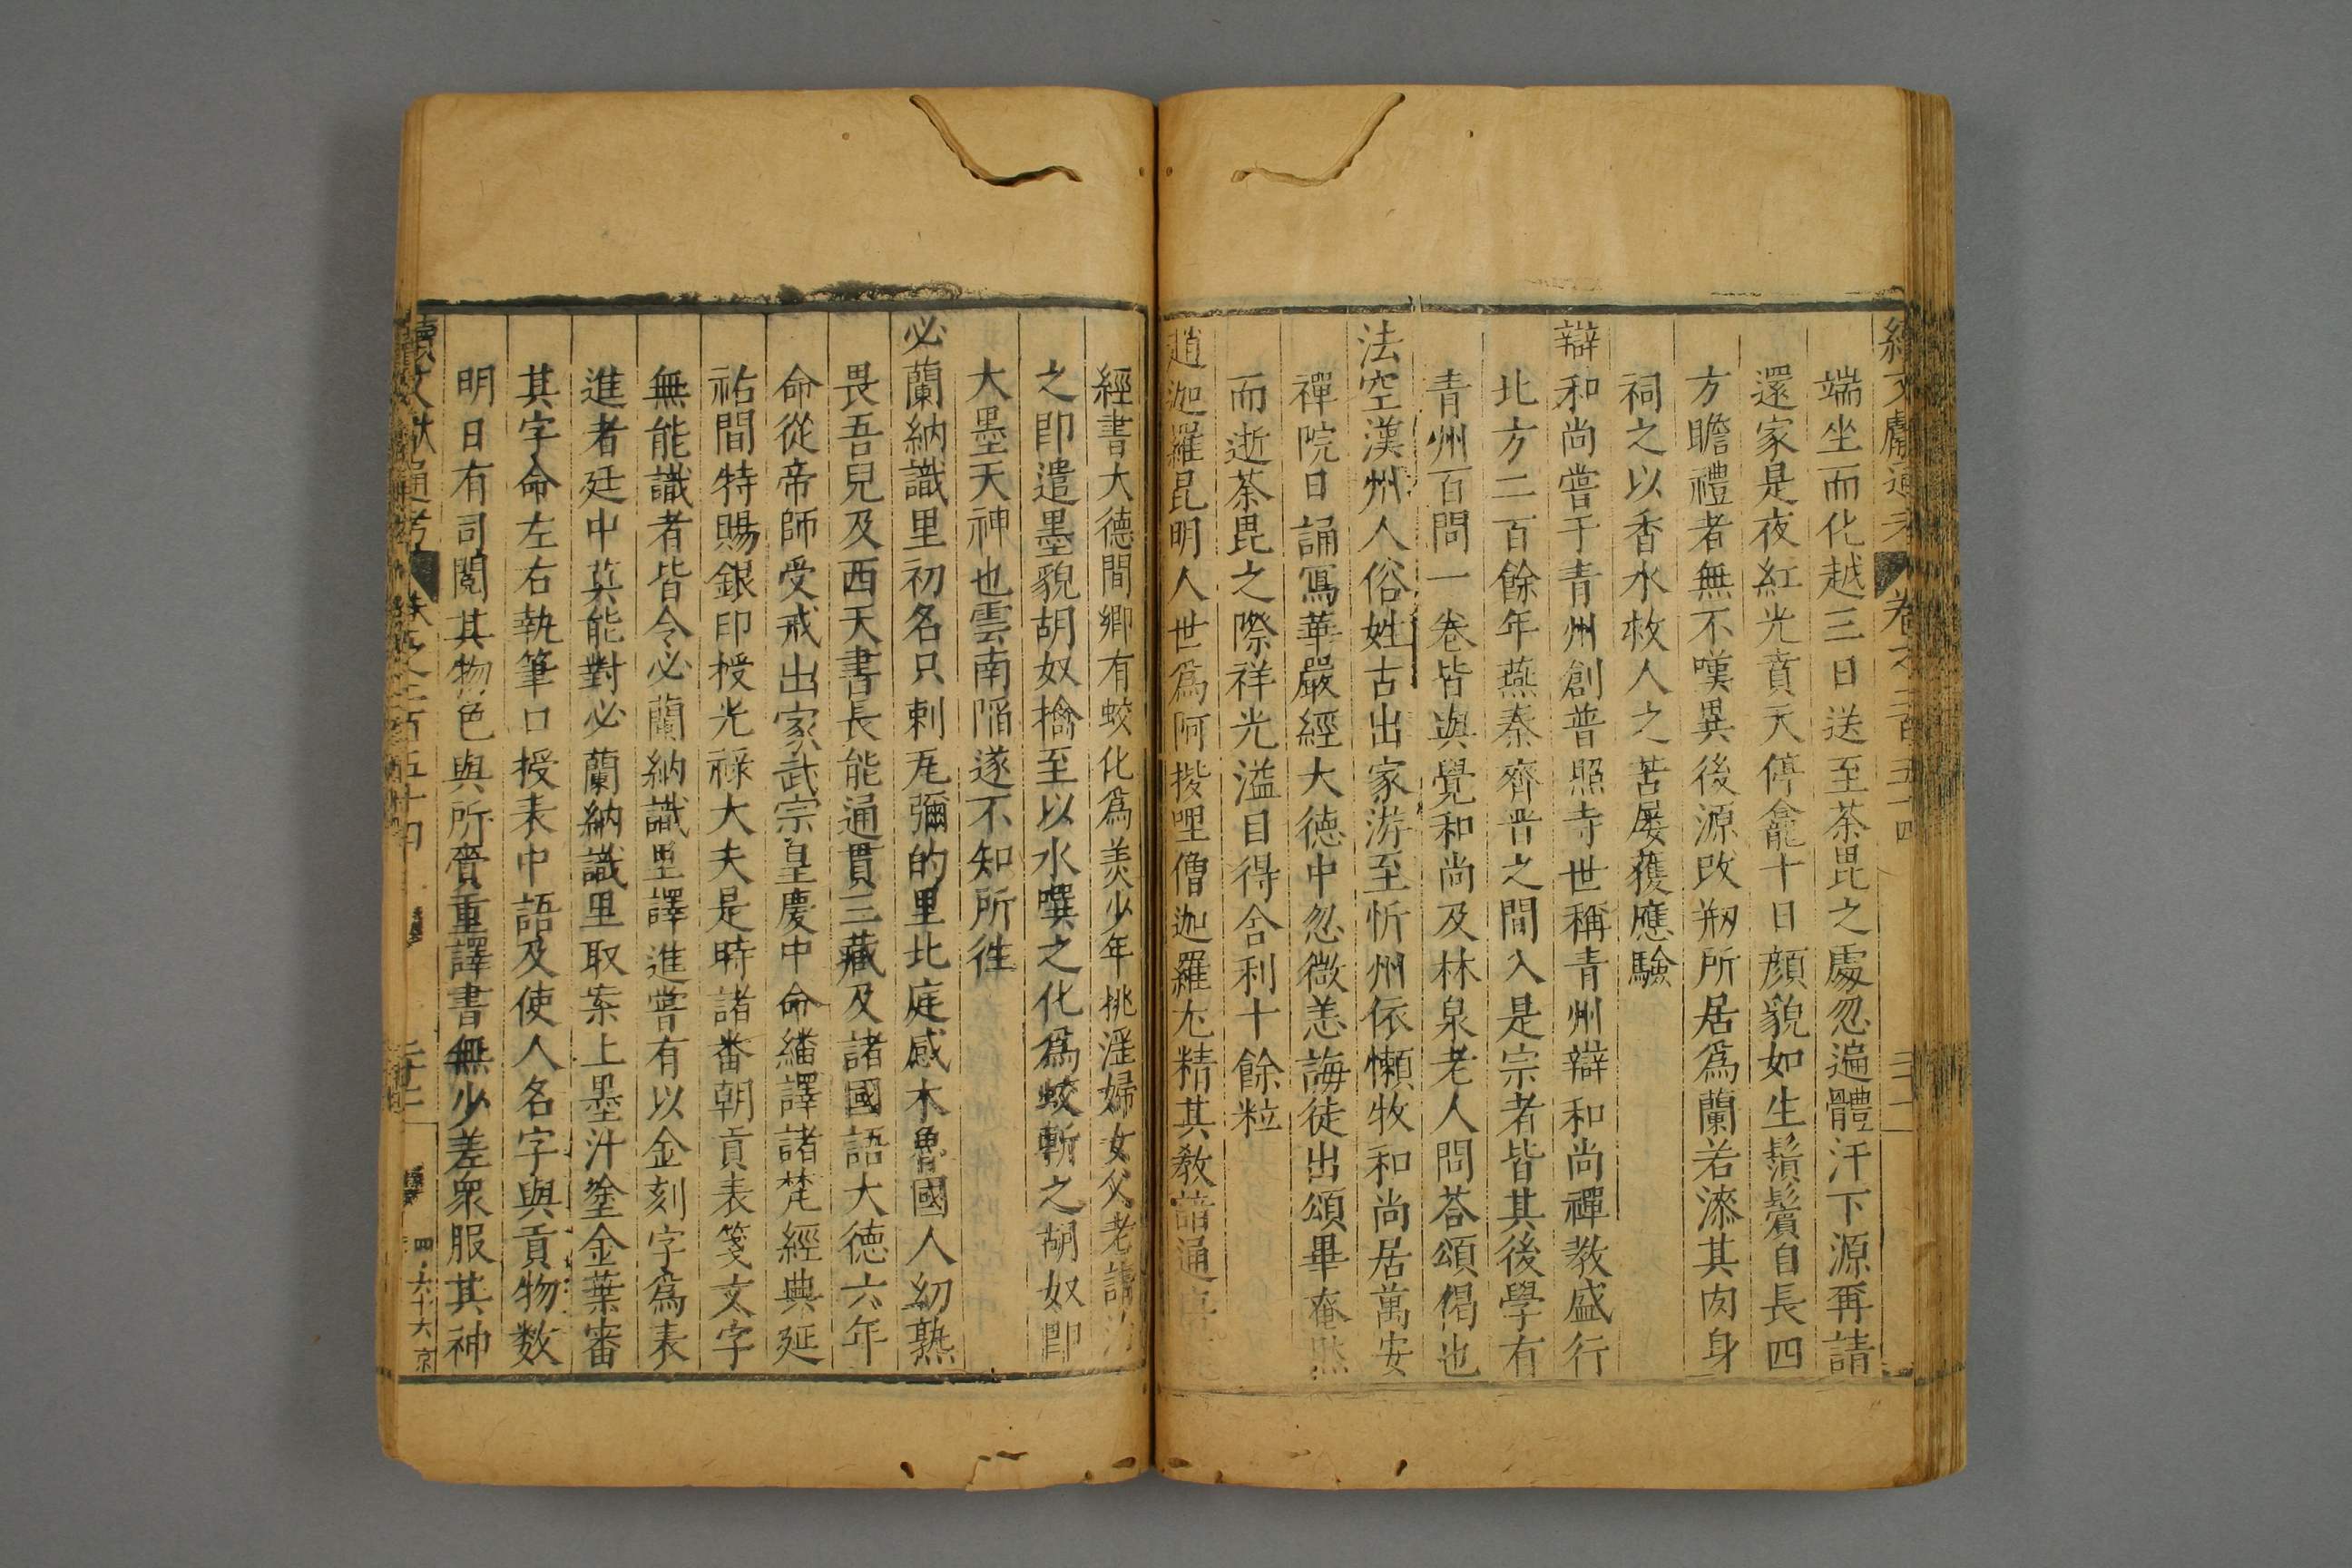 文獻通考 卷之二百五十四 三十二
端坐而化越三日送至荼毘之處忽遍體汗下源再請
還家是夜紅光賁天停龕十日顔貌如生鬚鬢自長四
方瞻禮者無不嘆異後源改剏所居爲蘭若漆其肉身
祠之以香水救人之苦屡獲應驗
辯和尚嘗于青州創普照寺世稱青州辯和尚禪教盛行
北方二百餘年燕秦齊晋之間入是宗者皆其後學有
青州百問一卷皆與覺和尚及林泉老人問荅頌偈也
法空漢州人俗姓古出家游至忻州依懶牧和尚居萬安
禪院日誦寫華嚴經大德中忽微恙誨徒出頌畢奄然
而逝荼毘之際祥光溢目得舍利十餘粒
趙迦羅昆明人世爲阿拶哩僧迦羅尤精其教諳通
經書大德間鄉有蛟化爲美少年挑淫婦女父老請治
之卽遣墨貌胡奴擒至以水噀之化爲蛟斬之胡奴卽
大墨天神也雲南陷遂不知所徃
必蘭納識里初名只剌尾彌的里北庭感木魯國人幼熟
畏吾兒及西天書長能通貫三藏及諸國語大德六年
命從帝師受戒出家武宗皇慶中命繙譯諸梵經典延
祐間特賜銀印授光祿大夫是時諸番朝貢表箋文字
無能識者皆令必蘭納識里譯進嘗有以金刻字爲表
進者廷中莫能對必蘭納識里取案上墨汁塗金葉審
其字命左右執筆口授表中語及使人名字與貢物数
明日有司閱其物色與所賫重譯書無少差衆服其神
續文獻通考 卷之二百五十四